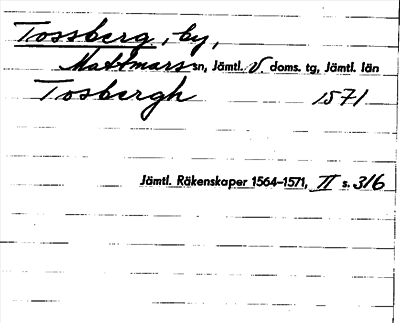 Tossberg, by,
Mattmars sn, Jämtl. V. doms. tg, Jämtl. län
Tosbergh 1571
Jämtl. Räkenskaper 1564–1571, II s. 316